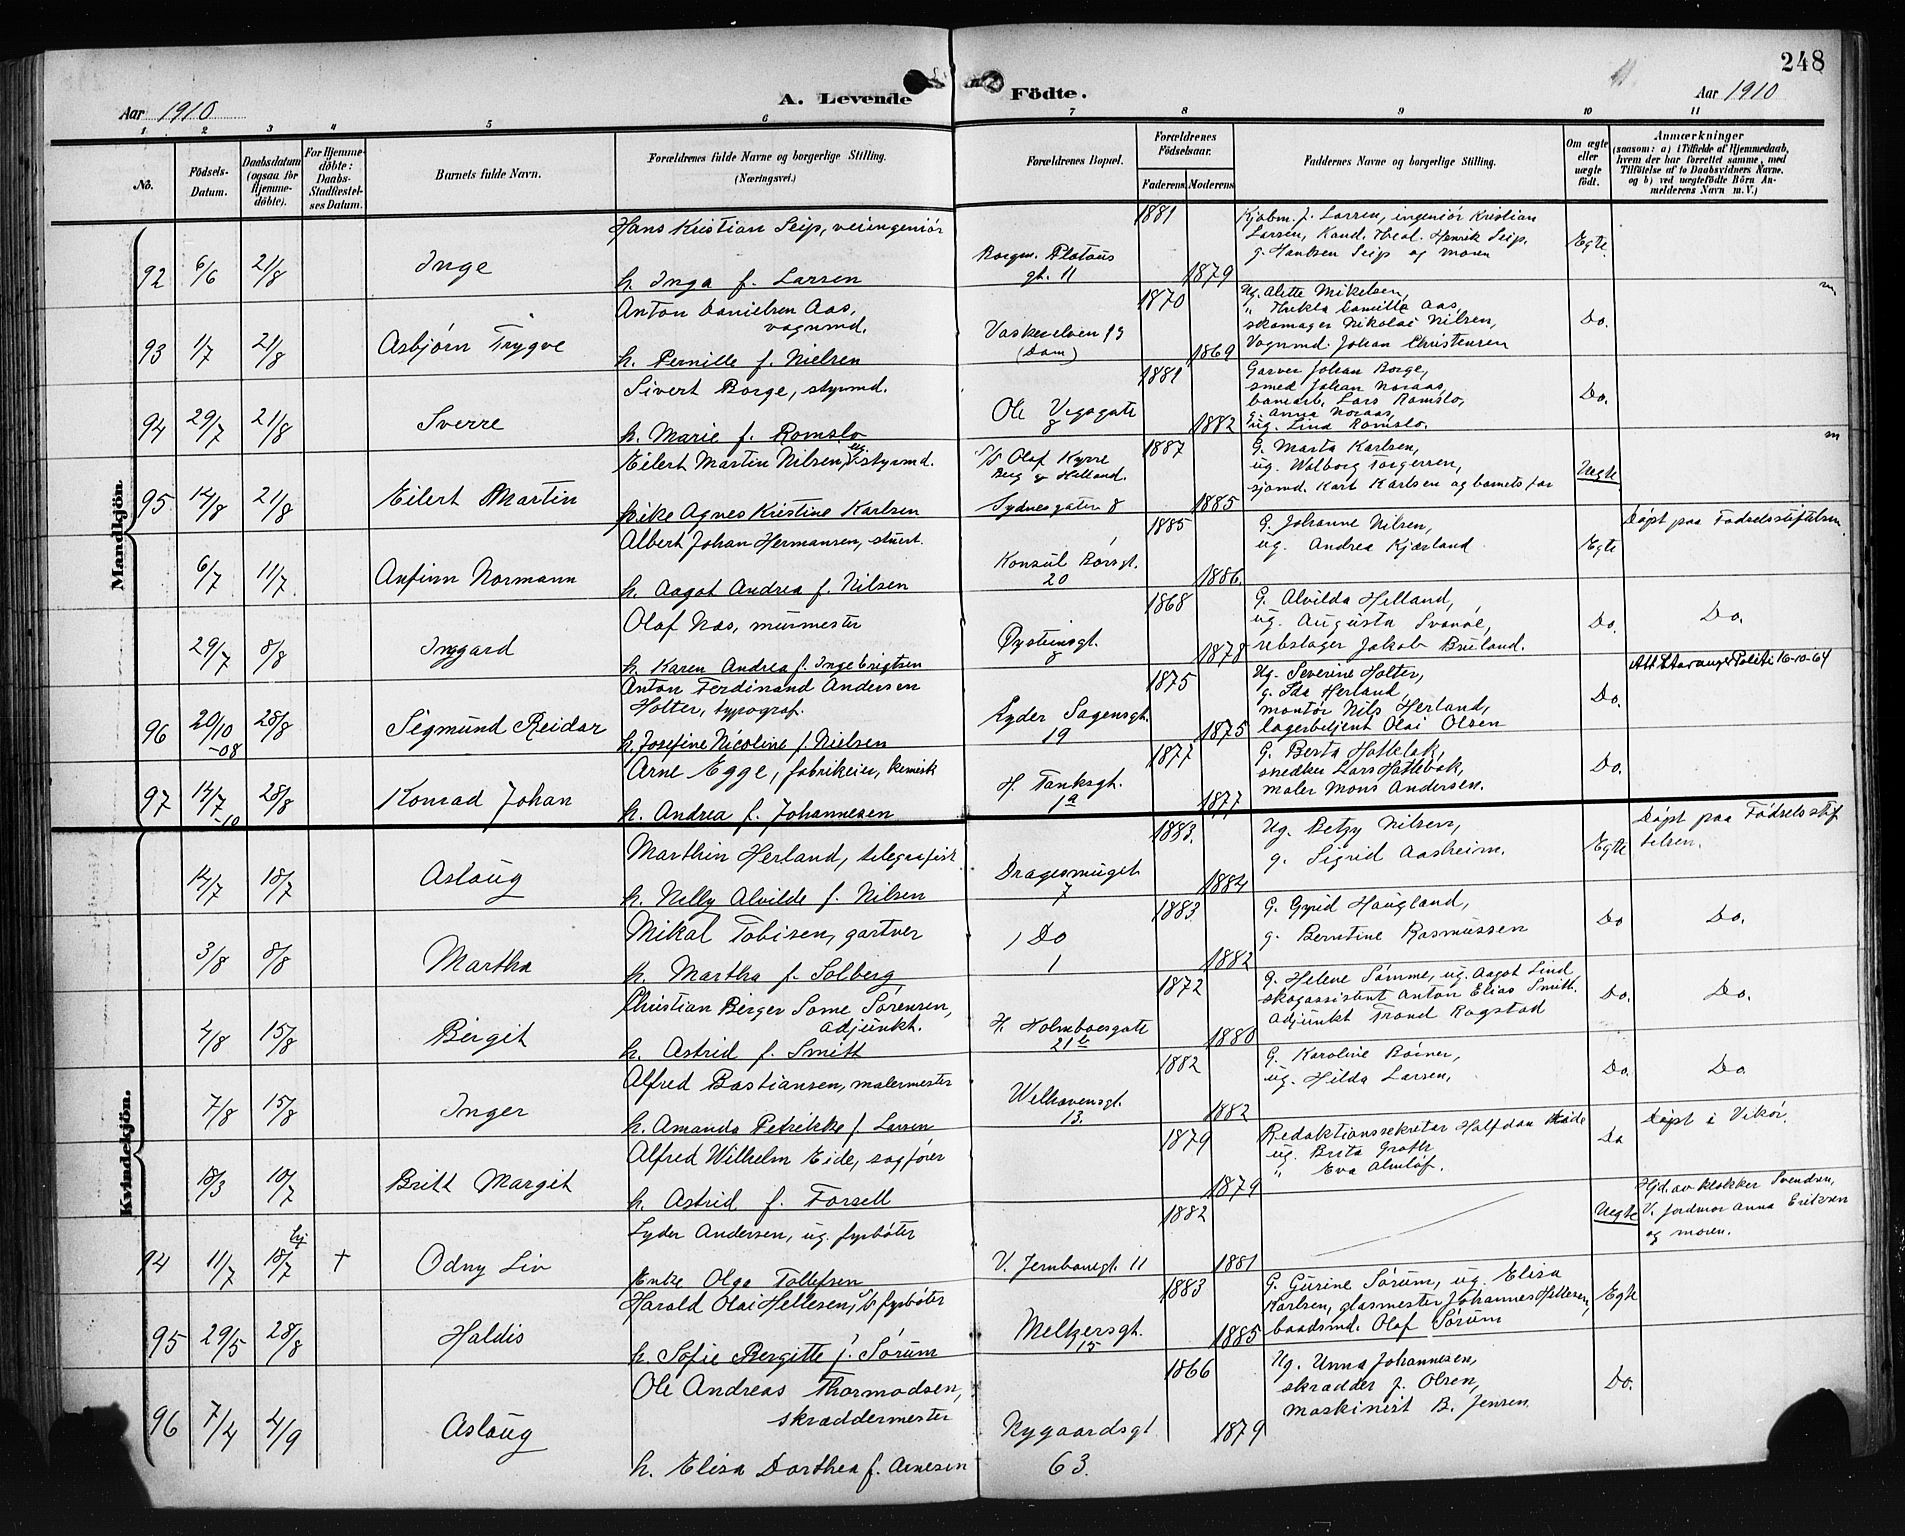 248
Aar 1910
A. Levende Födte.
Aar 1910
1 2 3 4 5 6 7 8 9 10 11
No.
Födsels-Datum.
Daabsdatum (ogsaa for Hjemme-döbte).
For Hjemme-döbte: Daabs-Stadfæstel-ses Datum.
Barnets fulde Navn.
Forældrenes fulde Navne og borgerlige Stilling.
(Næringsvei.)
Forældrenes Bopæl.
Forældrenes Födselsaar.
Faderens. Moderens.
Faddernes Navne og borgerlige Stilling.
Om ægte eller uægte født.
Anmærkninger
(saasom: a) i Tilfælde af Hjemmedaab,
hvem der har forrettet samme, med
Tilföielse af to Daabsvidners Navne,
og b) ved uægtefödte Börn An-
melderens Navn m. V.)
Mandkjön.
92 6/6 21/8 Inge
Hans Kristian Seip, veiingeniör
h. Inga f. Larsen
Borgm. Platous
gt. 11
1881 1879
Kjøbm. J. Larsen, ingeniör Kristian
Larsen, Kand. Theol. Henrik Seip,
g. Hansen Seip og moren
Egte.
93 1/7 21/8 Asbjörn Trygve
Anton Danielsen Aas,
vognmd.
h. Pernille f. Nielsen
Vaskerelven 19
(Dam)
1870 1869
Ug. Alette Mikelsen,
" Thekla Camilla Aas,
skomager Nikolai Nilsen,
Vognmd. Johan Christensen
Do.
94 29/7 21/8 Sverre
Sivert Borge, styrmd.
h. Marie f. Romslo
Ole Vigsgate
8
1881 1882
Garver Johan Borge,
smed Johan Noraas,
banearb. Lars Romslo,
g. Anna Noraas,
ug. Lina Romslo.
Do.
95 12/8 21/8 Eilert Martin
Eilert Martin Nilsen, ug. styrmd.
Pike Agnes Kristine Karlsen
S/S Olaf Kyrre
Berg & Helland.
Sydnesgaten 8
1887 1885
G. Marta Karlsen,
ug. Walborg Torgersen,
sjömd. Kart Karlsen og barnets far
Uegte
6/7 11/7 Anfinn Normann
Albert Johan Hermansen, stuert.
h. Aagot Andrea f. Nilsen
Konsul Børsgt.
20
1885 1886
G. Johanne Nilsen,
ug. Andrea Kjærland
Egte
Döpt paa Fødselsstiftelsen
29/7 8/8 Inggard
Olaf Næs, murmester
h. Karen Andrea f. Ingebrigtsen
Øysteinsgt.
8
1868 1878
G. Alvilda Helland,
ug. Augusta Svanöe,
rebslager Jakob Breiland.
Do.
Do.
96 20/10 -08 28/8 Sigmund Reidar
Anton Ferdinand Andersen
Holter, typograf.
h. Josefine Nicoline f. Nielsen
Lyder Sagensgt.
19
1875 1875
Ug. Severine Holter,
g. Ida Herland,
montör Nils Herland,
lagerbetjent Olai Olsen
Do.
Att Stavanger Politi 16-10-64
97 14/7 -10 28/8 Konrad Johan
Arne Egge, fabrikeier, kemisk
h. Andrea f. Johannesen
H. Tanksgt.
1a
1877 1877
G. Berta Hattebak,
snedker Lars Hattebak,
maler Mons Andersen.
Do.
Kvindekjön.
14/7 18/7 Aslaug
Marthin Herland, telegrafist
h. Nelly Alvilde f. Nilsen
Dragesmuget
7
1883. 1884
Ug. Betzy Nilsen,
g. Sigrid Aasheim.
Egte
Döpt paa Fødselsstif
telsen.
3/8 8/8 Martha
Mikal Tobisen, gartner
h. Martha f. Solberg
Do
1
1883. 1882
G. Gyrid Haugland,
g. Berntine Rasmussen
Do
Do.
4/8 15/8 Bergit
Christian Birger Some Sörensen,
adjunkt.
h. Astrid f. Smitt
H. Holmboesgate
21b
1872 1880
G. Helene Sömme, ug. Aagot Lind
skogassistent Anton Elias Smitt.
adjunkt Trond Rogstad
Do.
Do.
7/8 15/8 Inger
Alfred Bastiansen, malermester
h. Amanda Petrikke f. Larsen
Welhavensgt.
13.
1882 1882
G. Karoline Böiner,
ug. Hilda Larsen,
Do.
Do
18/3 10/7 Britt Margit
Alfred Wilhelm Eide, sagförer
h. Astrid f. Forsell
1879 1879
Redaktionssekretær Halfdan Eide
ug. Brita Groth,
" Eva Almlöf.
Do
Döpt i Vikör.
94 11/7 hj. 18/7 + Odny Liv
Lyder Andersen, ug. fyrböter
Enke Olga Tollefsen
V. Jernbanegt. 11
1882 1881
Uegte
Hjd. av klokker Svendsen,
V. jordmor Anna Eriksen
og moren.
95 29/5 28/8 Haldis
Harald Olai Hellesen, fyrböter
h. Sofie Bergitte f. Sörum
Meltzersgt.
15
1883 1885
G. Gurine Sörum, ug. Elisa
Karlsen, glasmester Johannes Hellesen,
baadsmd. Olaf Sörum
Egte
96 7/4 4/9 Aslaug
Ole Andreas Thormodsen,
skræddermester
h. Elisa Dorthea f. Arnesen
Nygaardsgt.
63.
1866 1879
Ug. Unna Johannesen,
skrædder J. Olsen,
maskinist B. Jensen
Do.